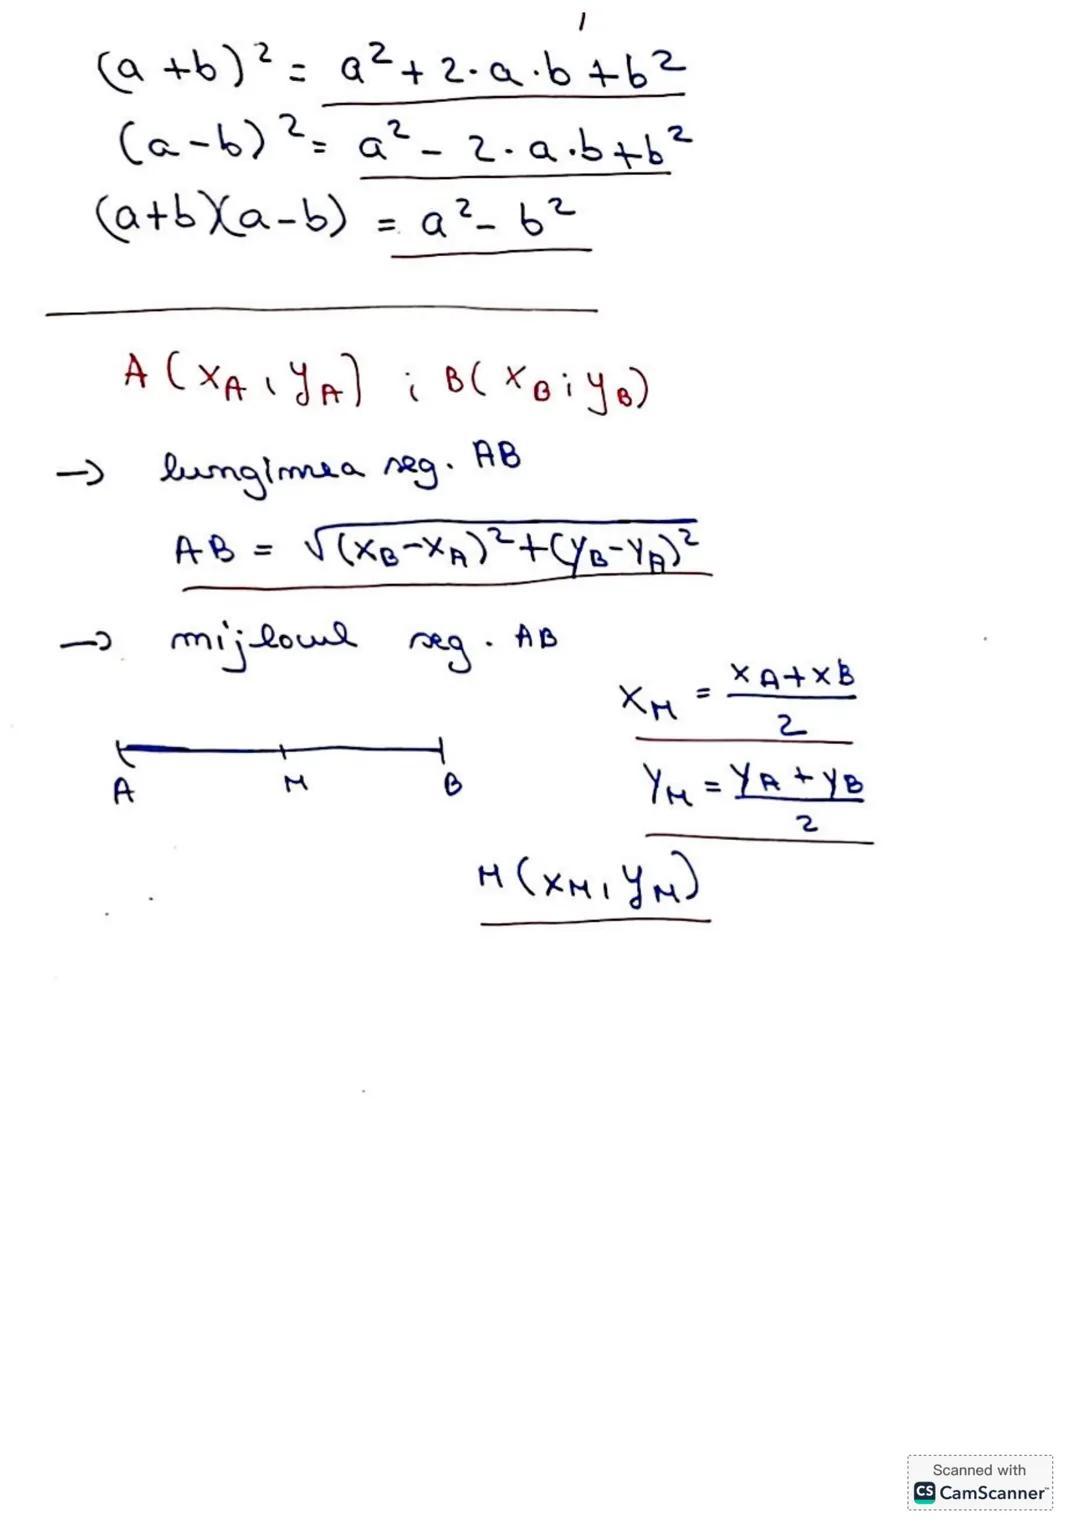 (a+b)² = a² + 2·a·b + b²
(a-b)² = a² - 2·a·b + b²
(a+b)(a-b) = a² - b²
A(xA, yA) ; B(xB; yB)
→ lungimea seg. AB
AB = √(xB-xA)²+(yB-yA)²
→ mijlocul seg. AB
xM = xA+xB / 2
A M B
yM = yA+yB / 2
M(xM, yM)
Scanned with
CS CamScanner